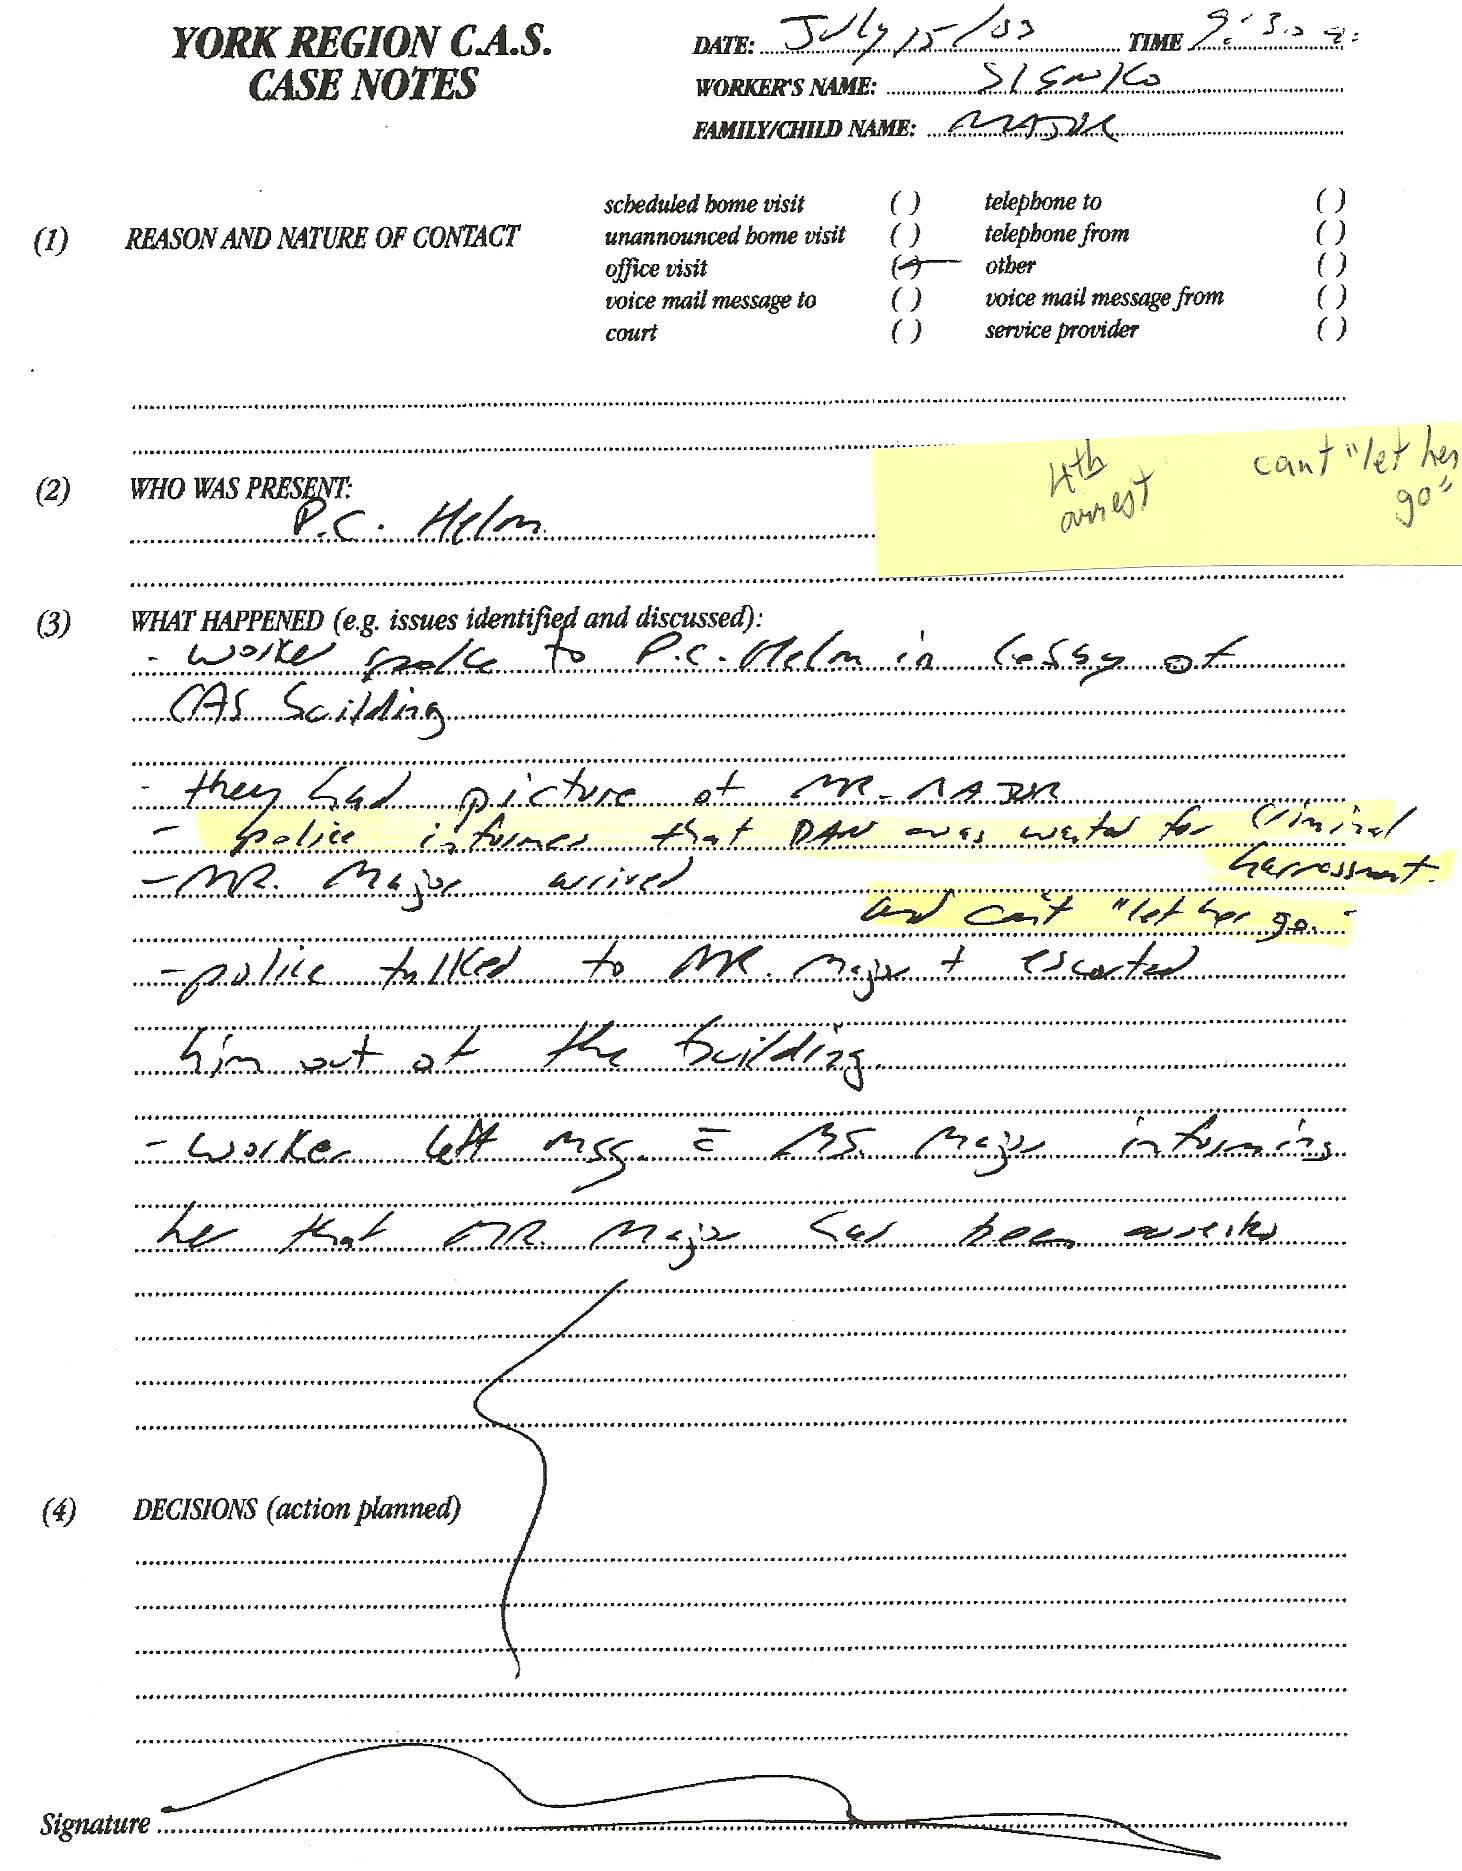 YORK REGION C.A.S.
CASE NOTES
DATE: July 15/03 TIME 9:30 a:
WORKER'S NAME: SIENKO
FAMILY/CHILD NAME: MAJOR
(1) REASON AND NATURE OF CONTACT
scheduled home visit ( ) telephone to ( )
unannounced home visit ( ) telephone from ( )
office visit ( ) other ( )
voice mail message to ( ) voice mail message from ( )
court ( ) service provider ( )
4th arrest
cant "let her go"
(2) WHO WAS PRESENT:
P.C. Helm
(3) WHAT HAPPENED (e.g. issues identified and discussed):
- worker spoke to P.C. Helm in lobby of
CAS building
- they had picture of MR. MAJOR
- police informed that DAN was wanted for criminal
harrassment.
- MR. Major arrived
and can't "let her go."
- police talked to MR. Major + escorted
him out of the building.
- worker left msg. c̄ MS. Major informing
her that MR. Major had been arrested
(4) DECISIONS (action planned)
Signature